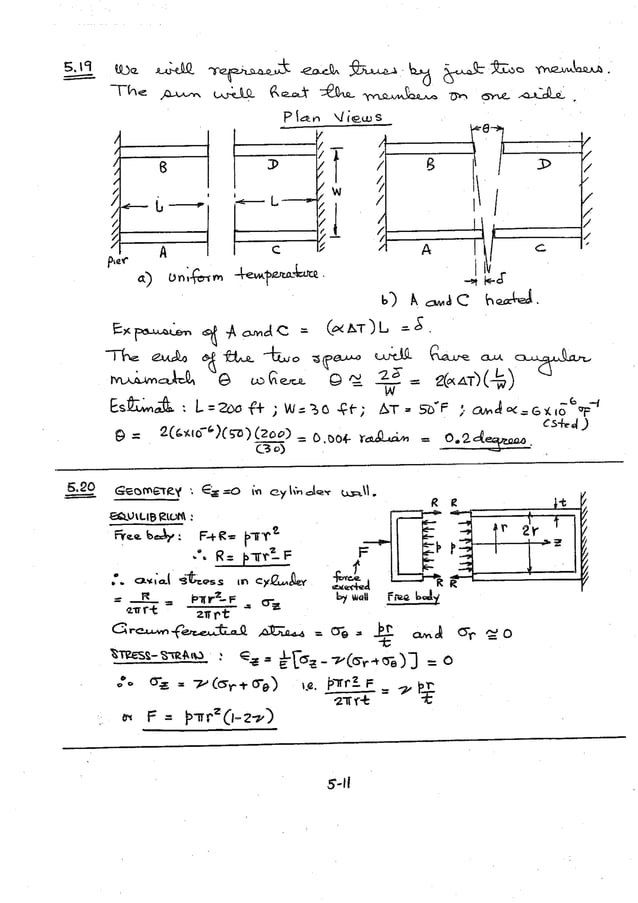 5.19 We will represent each truss by just two members.
The sun will heat the members on one side.
Plan Views
θ
B D B D
W
L L
A C A C
Pier
δ
a) Uniform temperature.
b) A and C heated.
Expansion of A and C = (αΔT)L = δ.
The ends of the two spans will have an angular
mismatch θ where θ ≅ 2δ/W = 2(αΔT)(L/W)
Estimate: L=200 ft ; W=30 ft; ΔT = 50°F ; and α = 6×10⁻⁶ °F⁻¹
(steel)
θ = 2(6×10⁻⁶)(50)(200)/(30) = 0.004 radian = 0.2 degrees.
5.20 GEOMETRY : ε_z=0 in cylinder wall.
R R t
EQUILIBRIUM:
Free body: F+R= pπr²
r 2r
F p p z
∴ R= pπr²-F
R R
∴ axial stress in cylinder
force
exerted
by wall
Free body
= R/2πrt = pπr²-F/2πrt = σ_z
Circumferential stress = σ_θ = pr/t and σ_r ≅ 0
STRESS-STRAIN : ε_z = 1/E[σ_z - ν(σ_r+σ_θ)] = 0
∴ σ_z = ν(σ_r+σ_θ) i.e. pπr²-F/2πrt = ν pr/t
or F = pπr²(1-2ν)
5-11